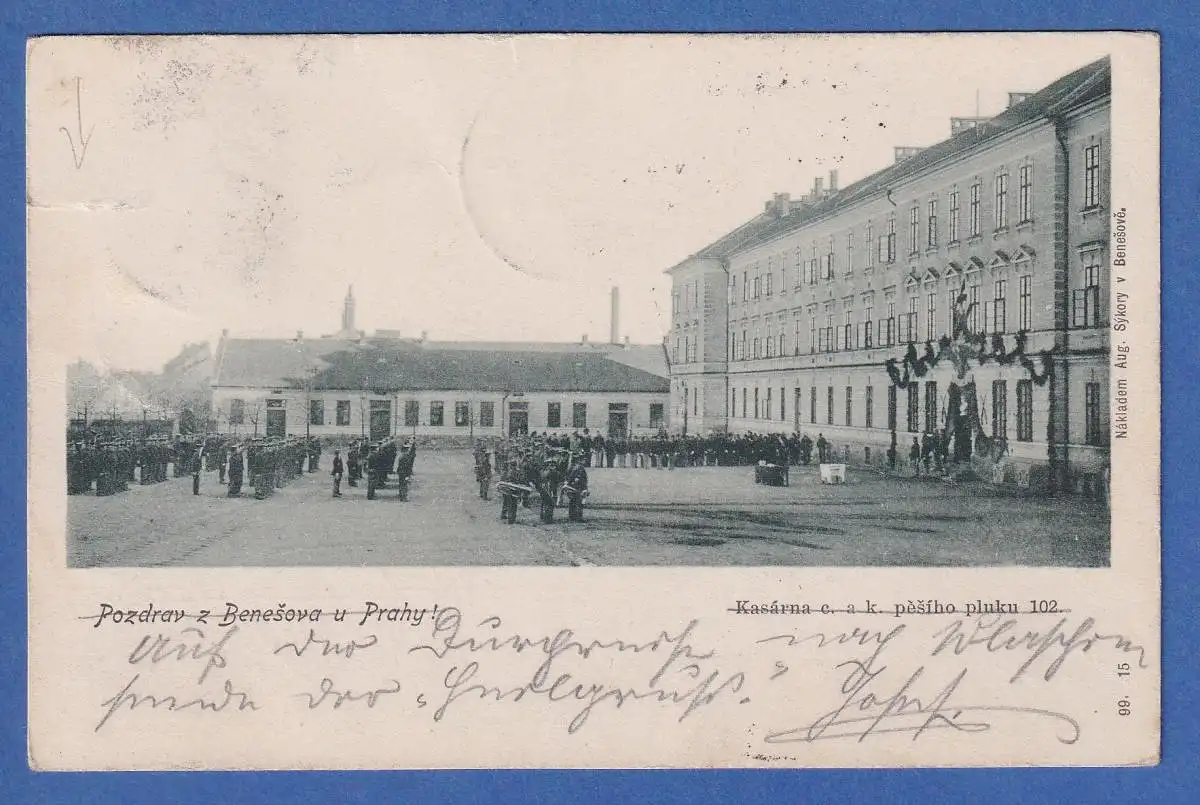 Nákladem Aug. Sýkory v Benešově.
Pozdrav z Benešova u Prahy!
Kasárna c. a k. pěšího pluku 102.
Auf der Durchreise nach Wlaschim
sende der „Heilgruß."
Josef.
99. 15